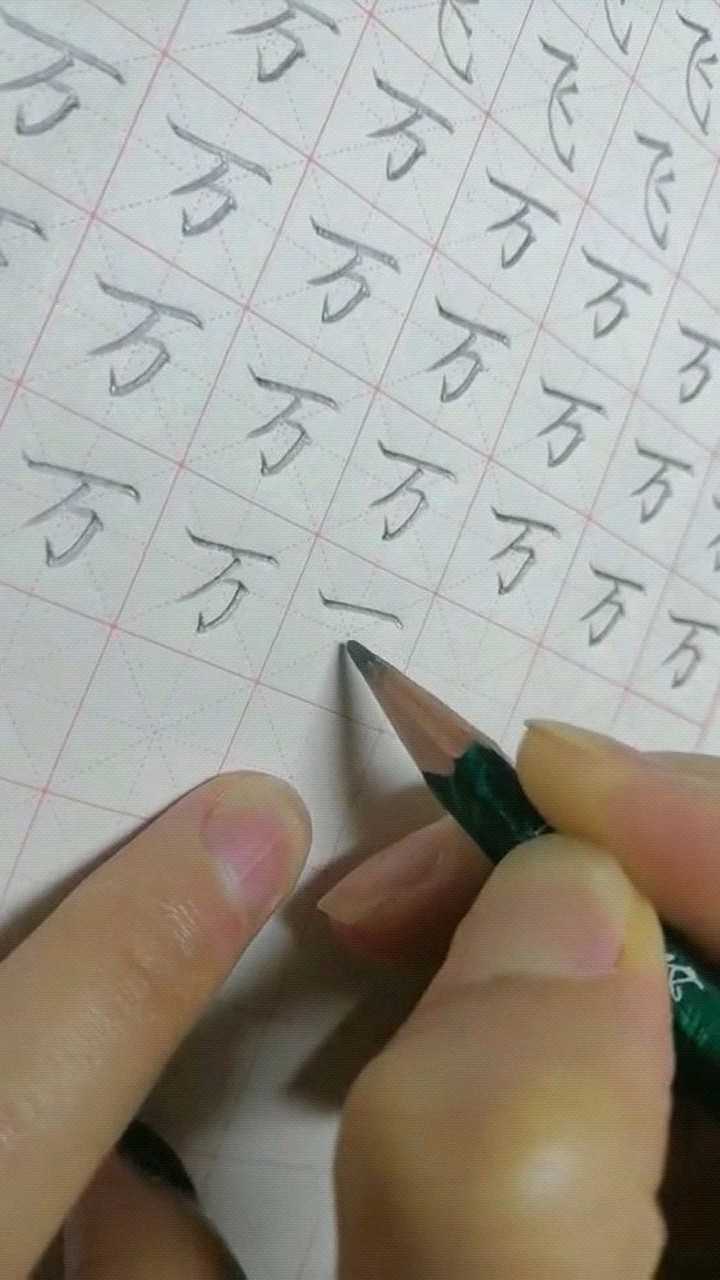 飞 飞
飞 飞 飞
万 万 万 万 万
万 万 万 万 万 万
万 万 万 万 万 万
万 万 一